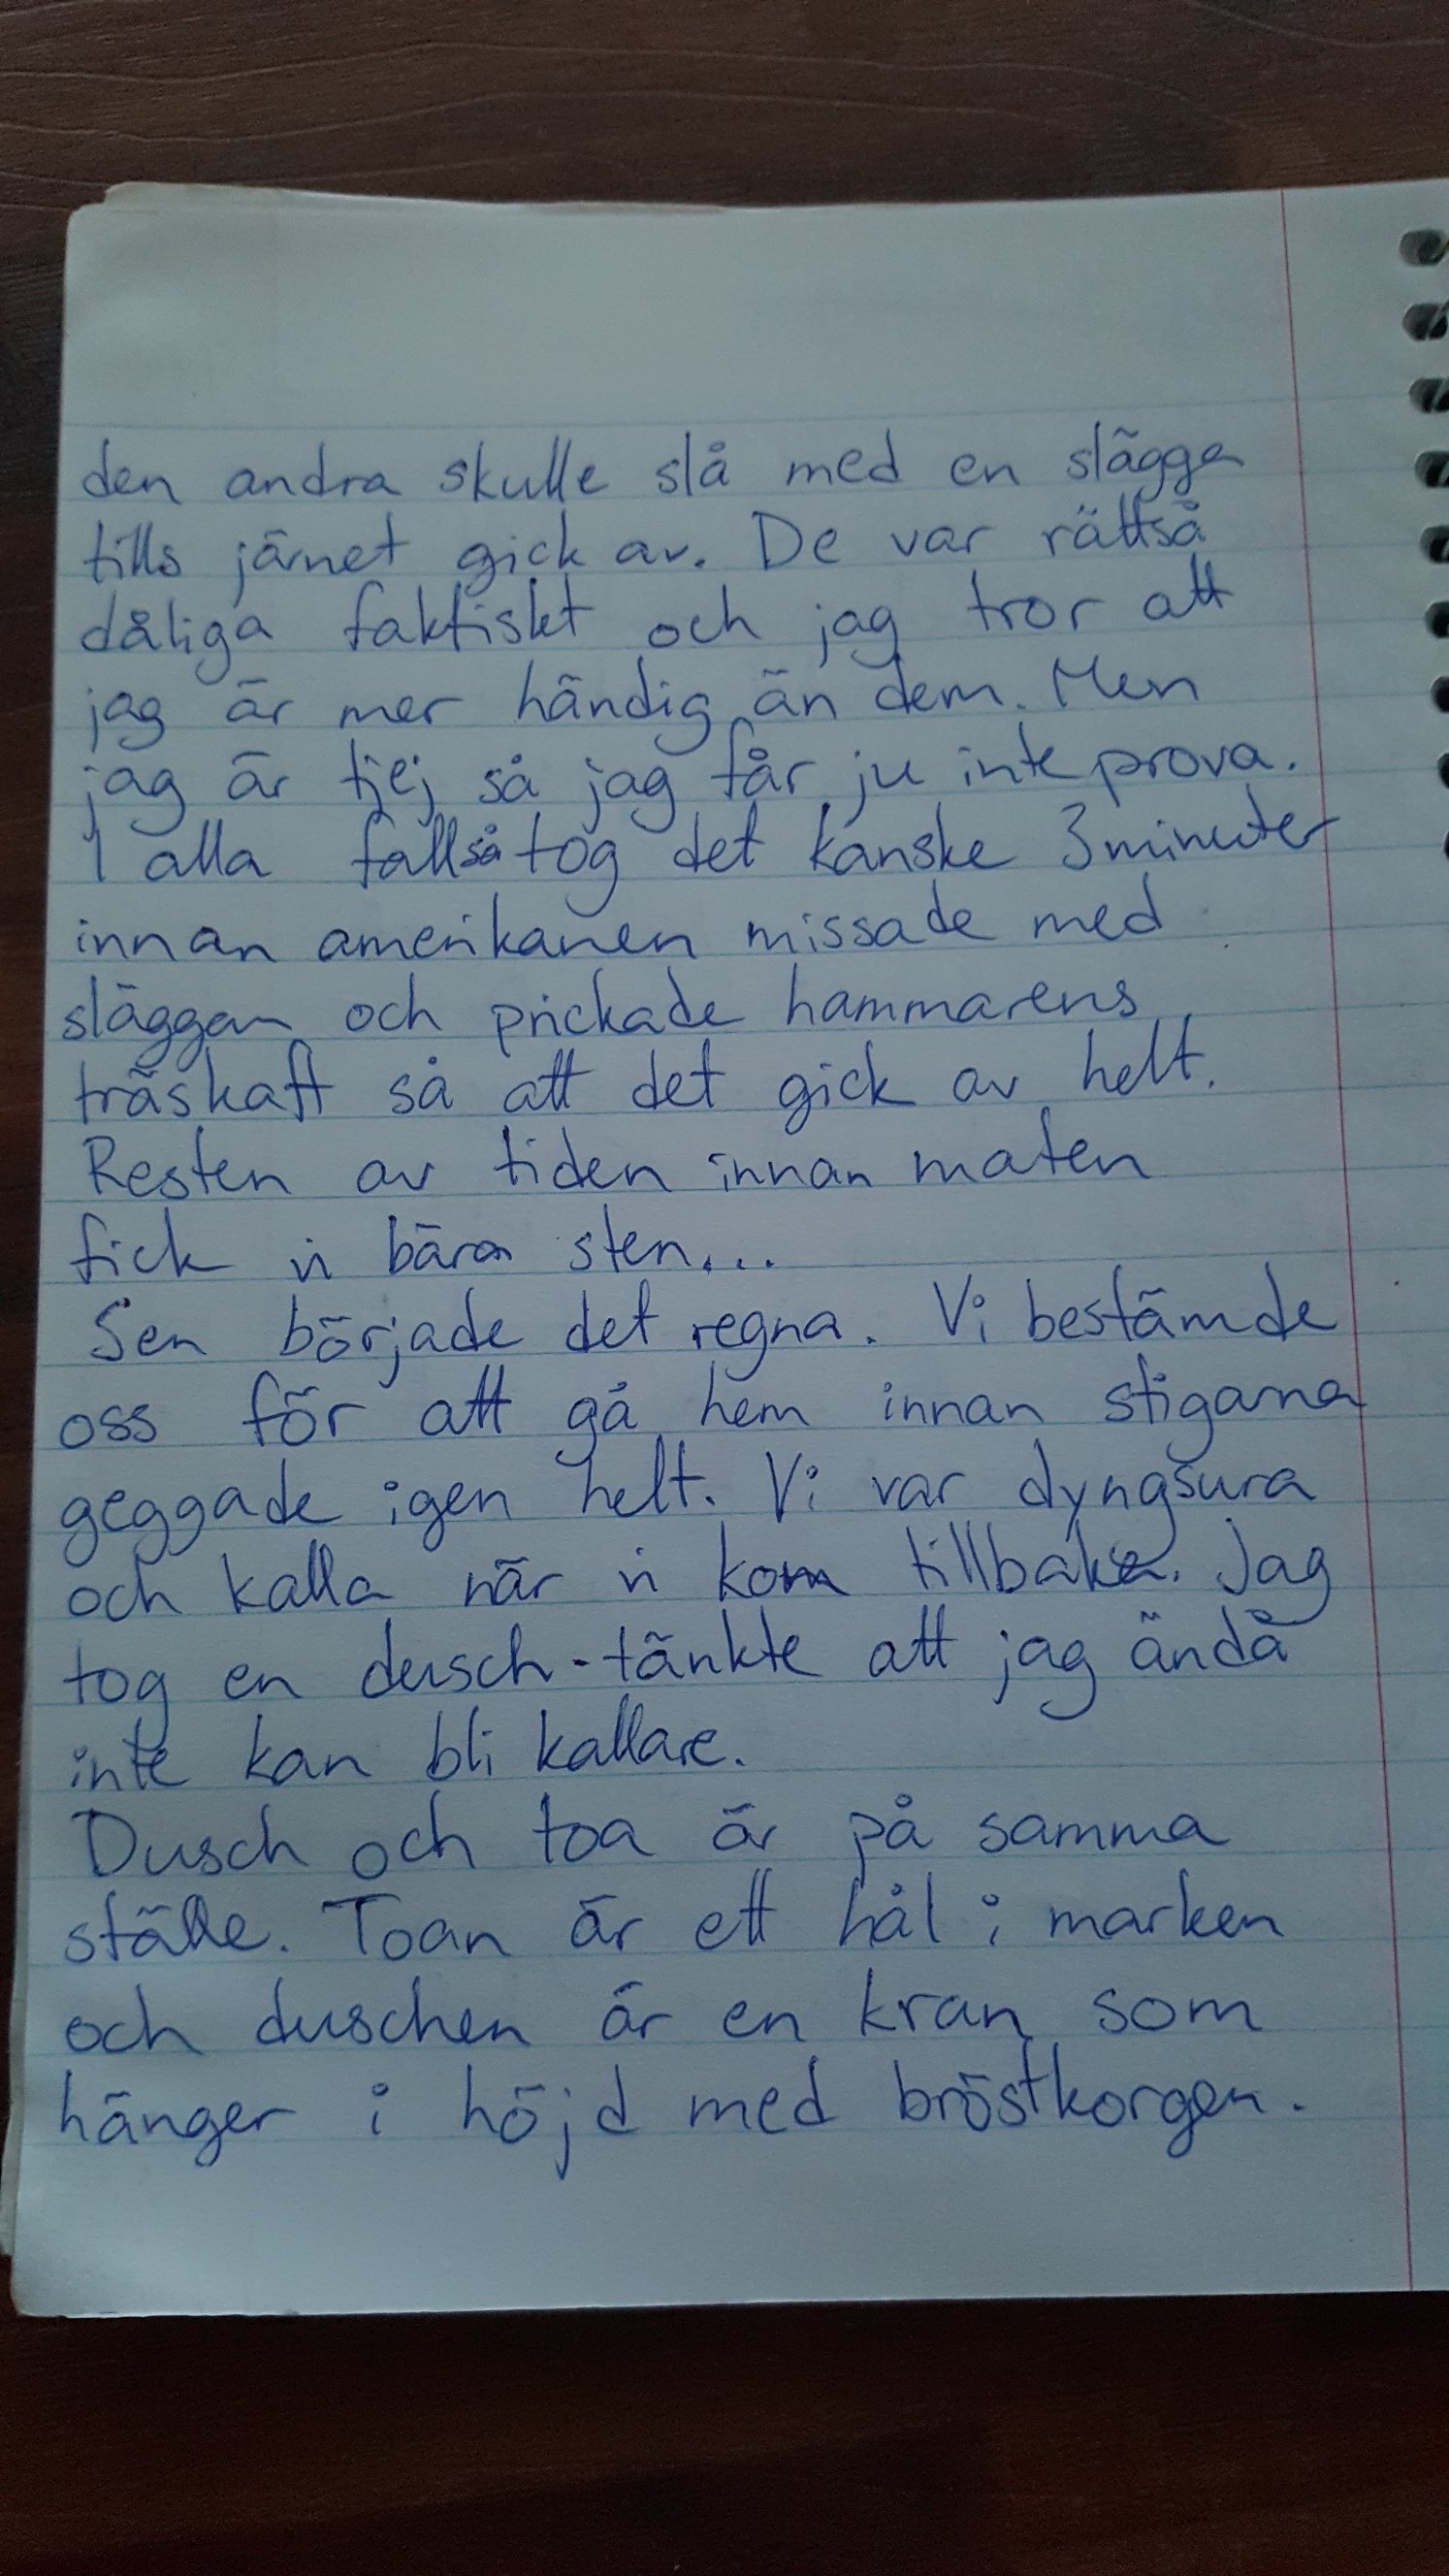 den andra skulle slå med en slägga
tills järnet gick av. De var rättså
dåliga faktiskt och jag tror att
jag är mer händig än dem. Men
jag är tjej så jag får ju inte prova.
I alla fall så tog det kanske 3 minuter
innan amerikanen missade med
släggan och prickade hammarens
träskaft så att det gick av helt.
Resten av tiden innan maten
fick vi bära sten...
Sen började det regna. Vi bestämde
oss för att gå hem innan stigarna
geggade igen helt. Vi var dyngsura
och kalla när vi kom tillbaka. Jag
tog en dusch - tänkte att jag ändå
inte kan bli kallare.
Dusch och toa är på samma
ställe. Toan är ett hål i marken
och duschen är en kran som
hänger i höjd med bröstkorgen.